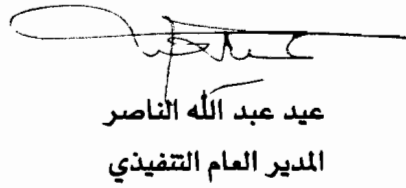 عيد عبد الله الناصر
المدير العام التنفيذي